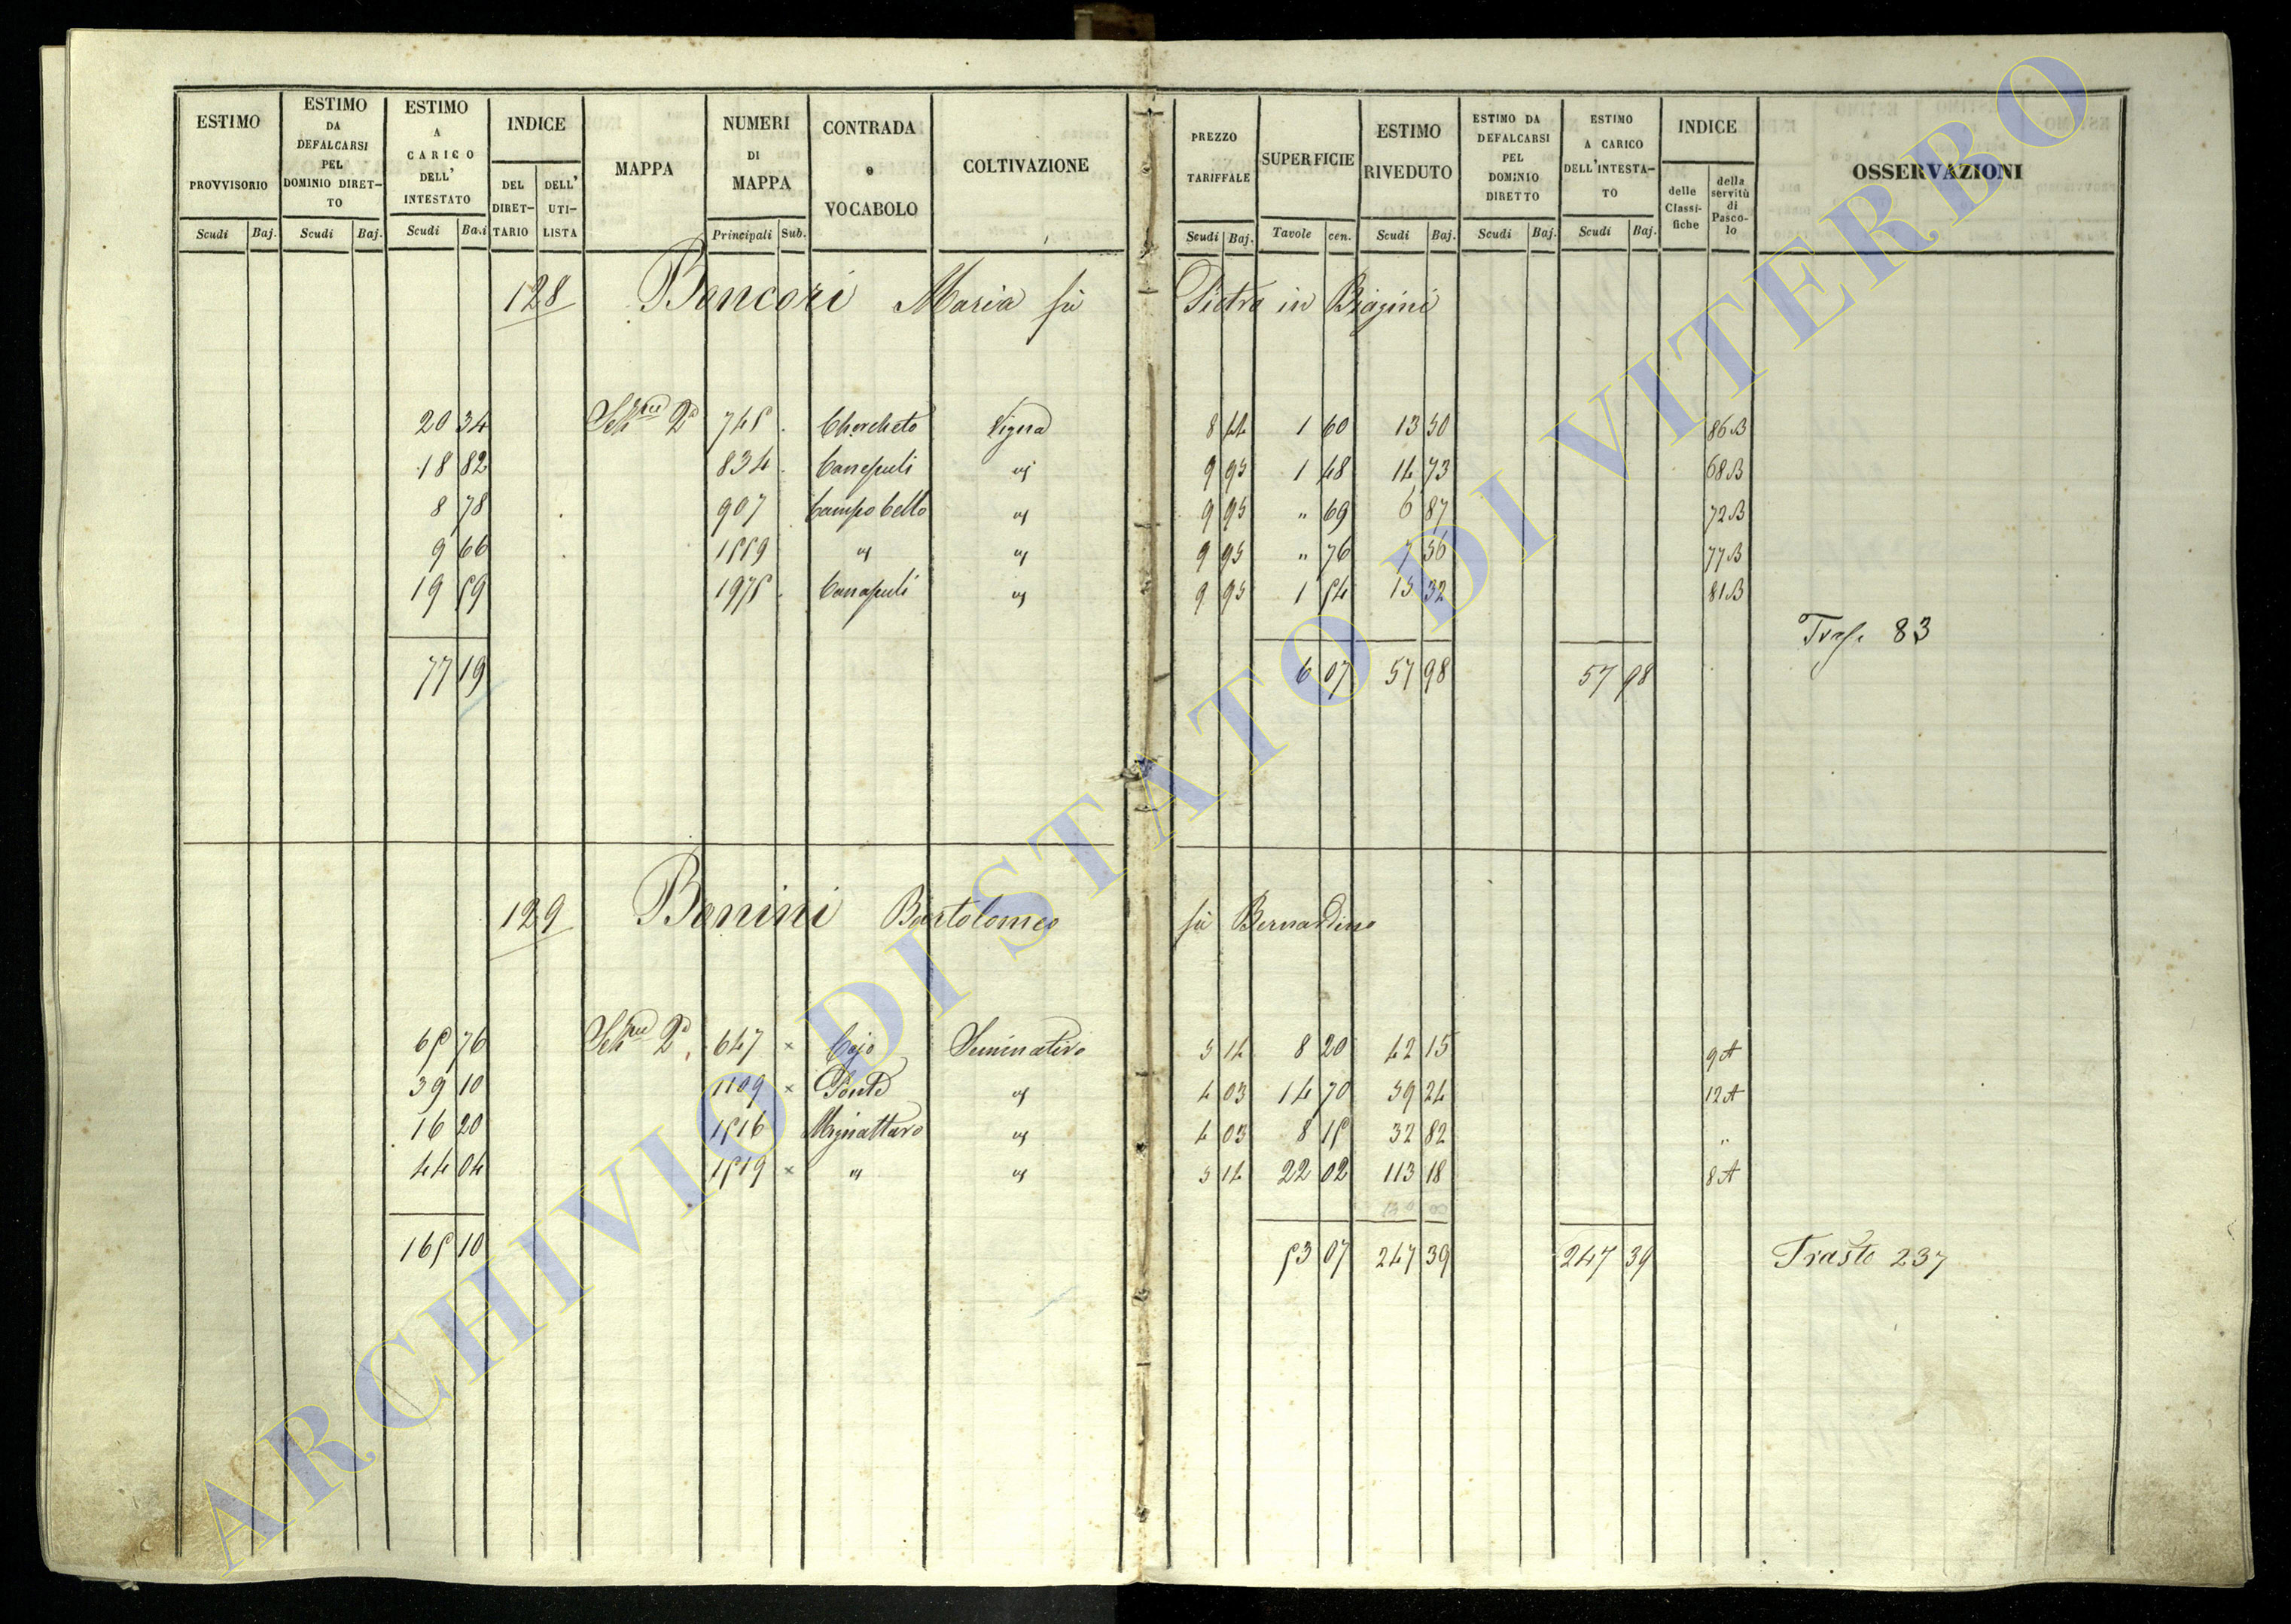 ESTIMO PROVVISORIO Scudi Baj.
ESTIMO DA DEFALCARSI PEL DOMINIO DIRETTO Scudi Baj.
ESTIMO A CARICO DELL' INTESTATO Scudi Baj.
INDICE DEL DIRETTARIO DELL' UTILISTA
MAPPA
NUMERI DI MAPPA Principali Sub.
CONTRADA o VOCABOLO
COLTIVAZIONE
PREZZO TARIFFALE Scudi Baj.
SUPERFICIE Tavole cen.
ESTIMO RIVEDUTO Scudi Baj.
ESTIMO DA DEFALCARSI PEL DOMINIO DIRETTO Scudi Baj.
ESTIMO A CARICO DELL'INTESTATO Scudi Baj.
INDICE delle Classifiche della servitù di Pascolo
OSSERVAZIONI
128 Boncori Maria fù Pietro in Biagini
20 34 748 Vigna 8 44 1 60 13 50 86B
18 82 834 Canepuli " 9 95 1 48 14 73 68B
8 78 907 Campo bello " 9 95 " 69 6 87 72B
9 66 1559 " " 9 95 " 76 7 56 77B
19 59 1975 Canapuli " 9 95 1 54 15 32 81B
Trasp. 83
77 19 6 07 57 98 57 98
129 Bonini Bartolomeo fù Bernardino
65 76 647 × Cajo Seminativo 5 14 8 20 42 15 9A
39 10 1109 × Ponte " 4 03 14 70 59 24 12A
16 20 1516 Mignattaro " 4 03 8 15 32 82 "
44 04 1519 × " " 5 14 22 02 113 18 8A
165 10 53 07 247 39 247 39 Trasto 237
ARCHIVIO DI STATO DI VITERBO